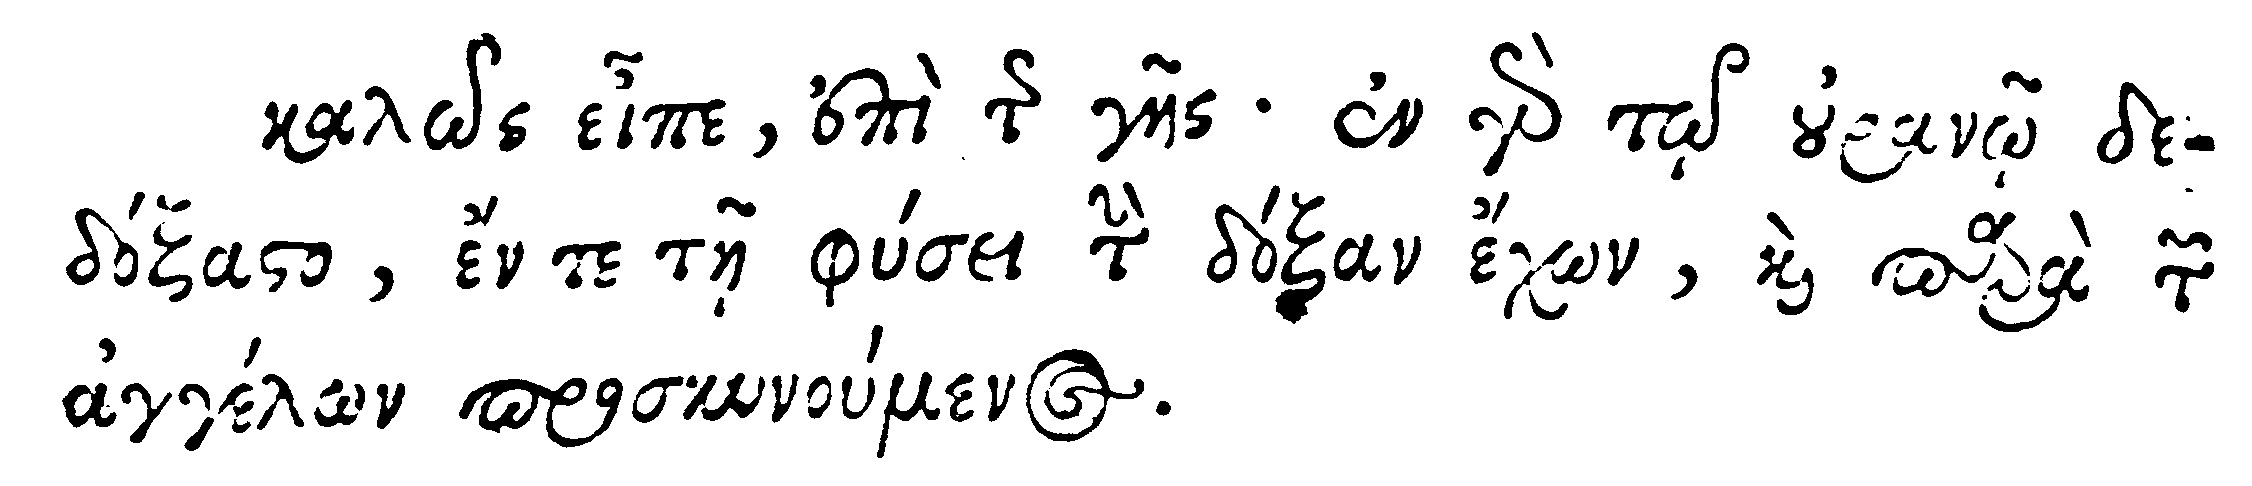 καλῶς εἶπε, ἐπὶ τῆς γῆς· ἐν γὰρ τῷ οὐρανῷ δε-
δόξαστο, ἔν τε τῇ φύσει τὴν δόξαν ἔχων, καὶ παρὰ τῶν
ἀγγέλων προσκυνούμενος.